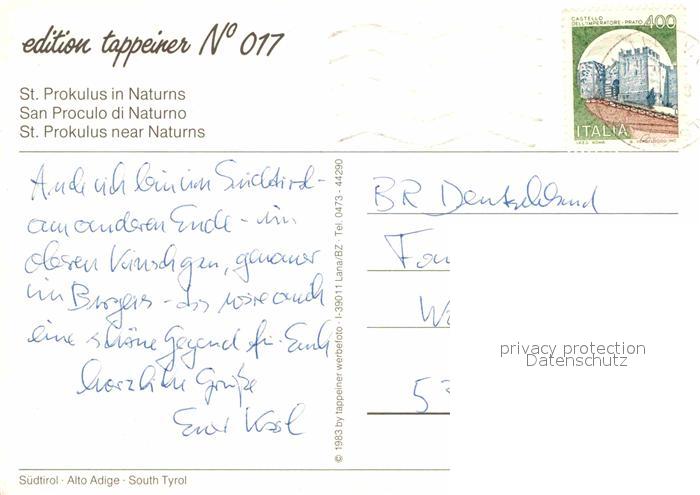 edition tappeiner Nº 017
CASTELLO
DELL'IMPERATORE - PRATO
400
ITALIA
St. Prokulus in Naturns
San Proculo di Naturno
St. Prokulus near Naturns
Auch ich bin im Südtirol -
am anderen Ende - im
oberen Vinschgau, genauer
im Burgeis - das wäre auch
eine schöne Gegend für Euch
herzliche Grüße
Euer
BR Deutschland
Fam
W
5
© 1983 by tappeiner werbefoto · I-39011 Lana/BZ · Tel. 0473 - 44290
privacy protection
Datenschutz
Südtirol · Alto Adige · South Tyrol